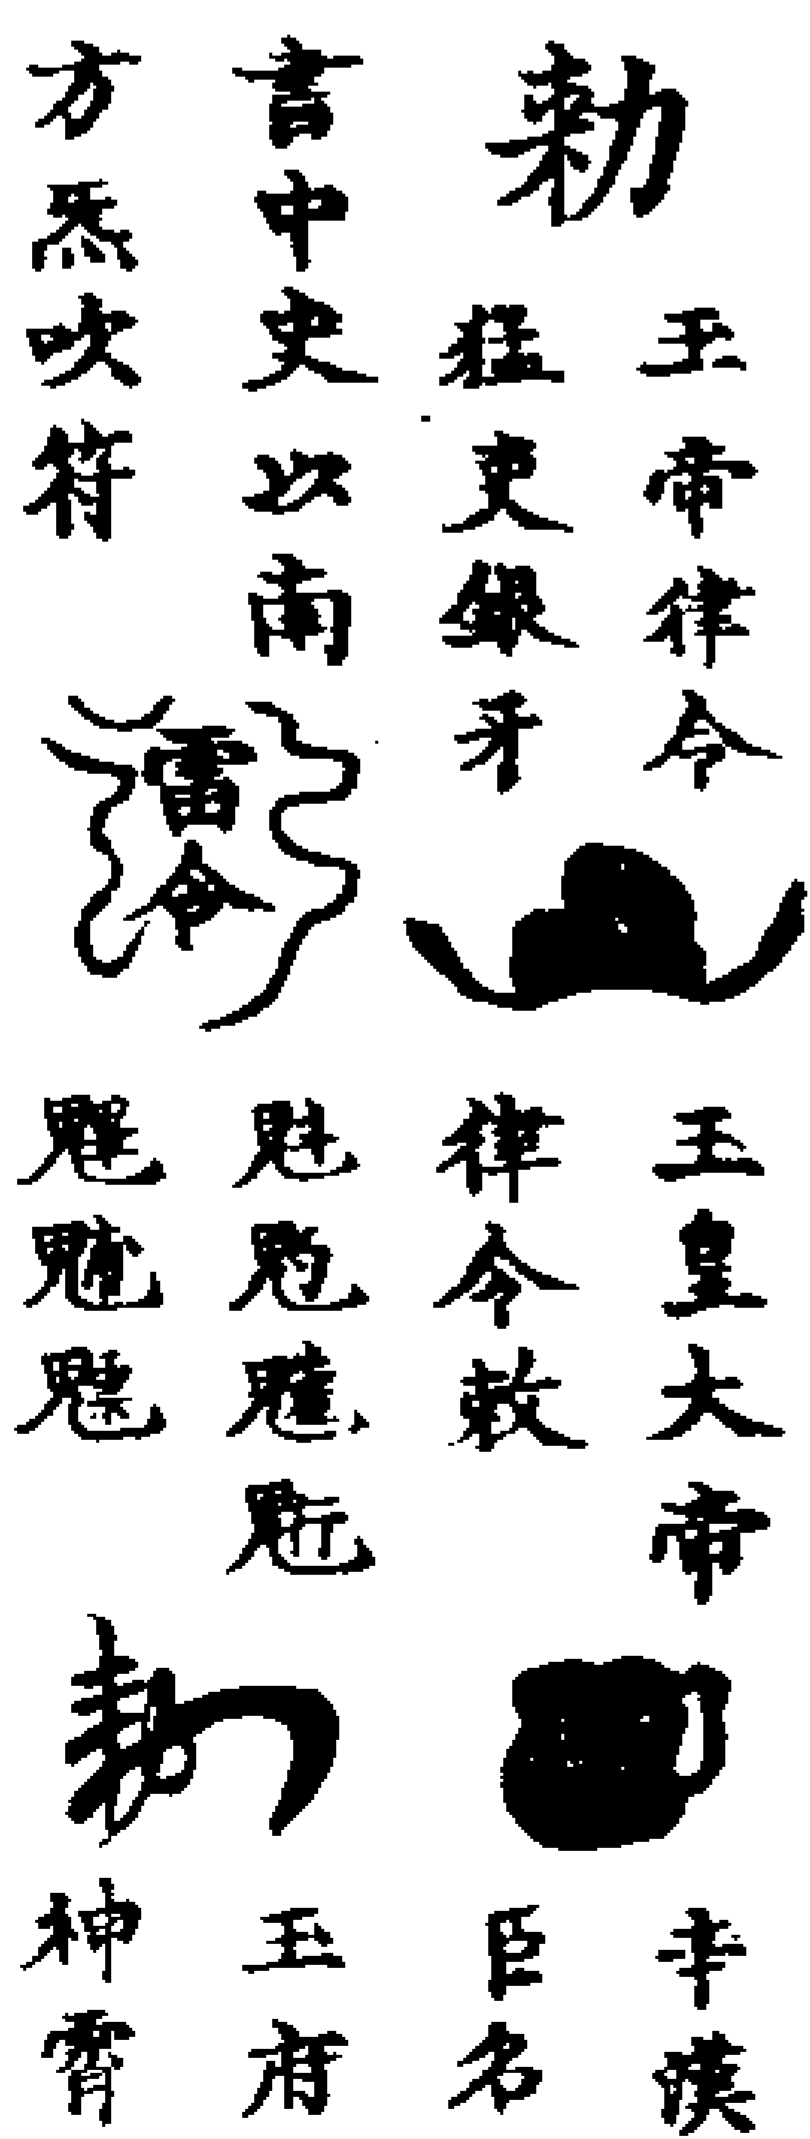 勅
玉帝律令
猛吏銀牙
書中史以南
方炁吹符
雷令
玉皇大帝
律令敕
魁𩲃䰱䰢
魓𩳐魒
勅
辛漢
臣名
玉府
神霄